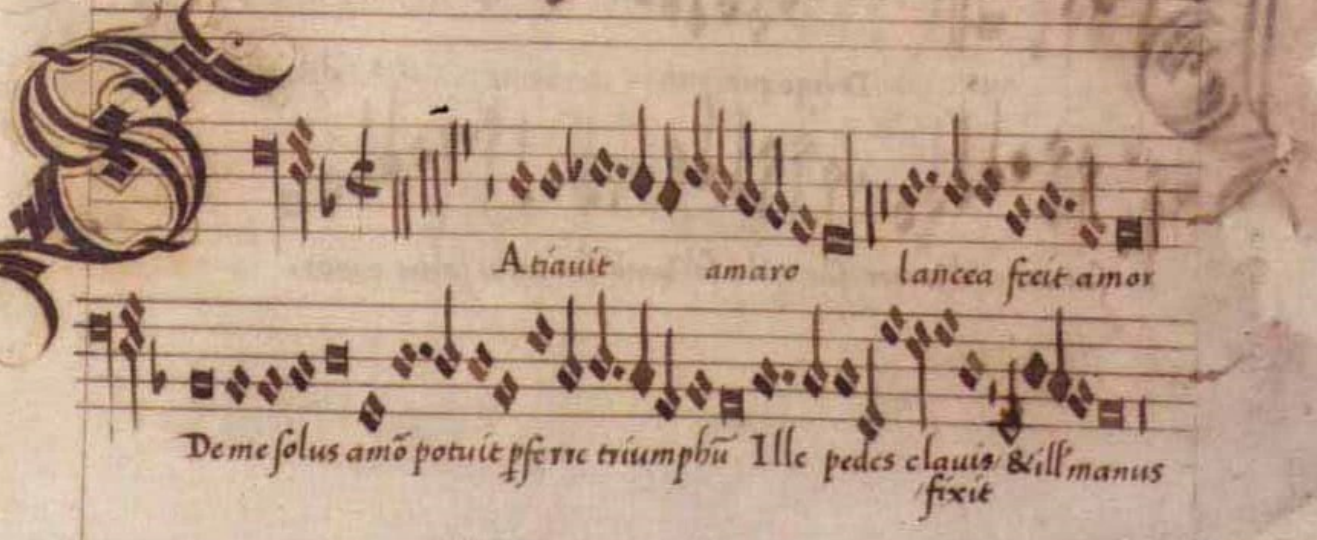 SAtiauit amaro lancea fecit amor
De me solus amō potuit pferre triumphū Ille pedes clauis & ill' manus
fixit